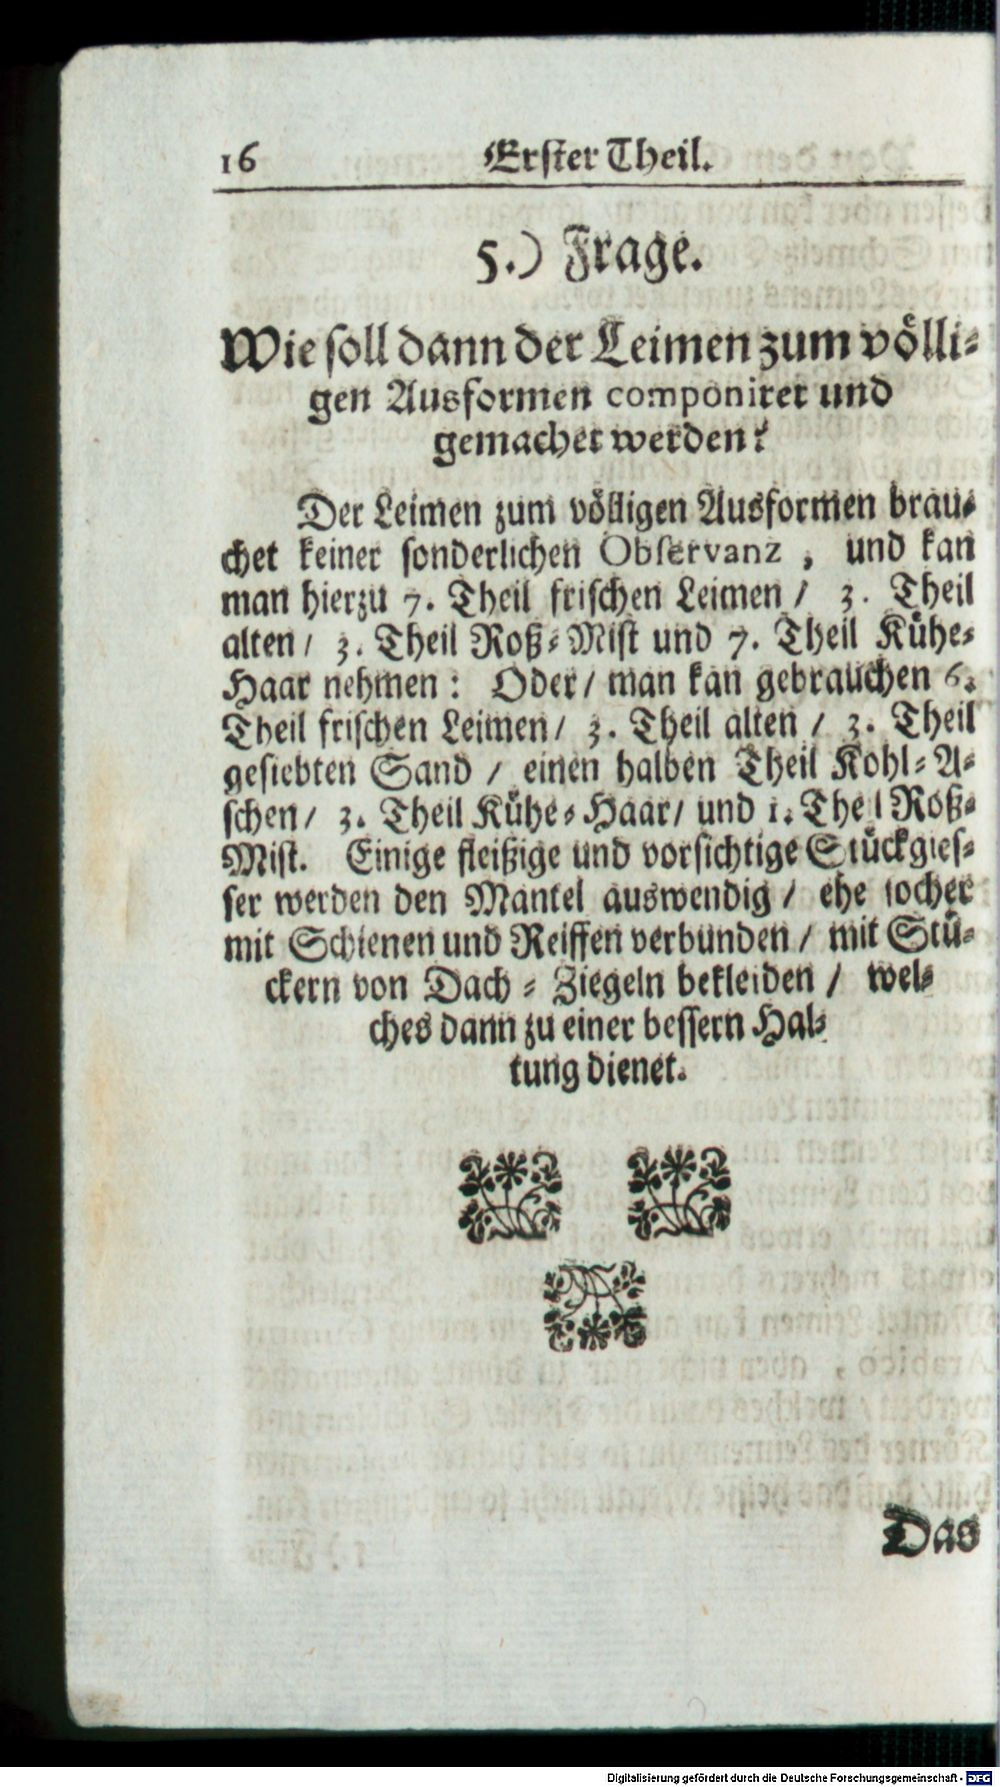 16 Erster Theil.
5.) Frage.
Wie soll dann der Leimen zum völli-
gen Ausformen componiret und
gemachet werden?
Der Leimen zum völligen Ausformen brau-
chet keiner sonderlichen Observanz, und kan
man hierzu 7. Theil frischen Leimen / 3. Theil
alten / 3. Theil Roß-Mist und 7. Theil Kühe-
Haar nehmen: Oder / man kan gebrauchen 6.
Theil frischen Leimen / 3. Theil alten / 3. Theil
gesiebten Sand / einen halben Theil Kohl-A-
schen / 3. Theil Kühe-Haar / und 1. Theil Roß-
Mist. Einige fleißige und vorsichtige Stückgies-
ser werden den Mantel auswendig / ehe socher
mit Schienen und Reiffen verbunden / mit Stü-
ckern von Dach-Ziegeln bekleiden / wel-
ches dann zu einer bessern Hal-
tung dienet.
Das
Digitalisierung gefördert durch die Deutsche Forschungsgemeinschaft - DFG